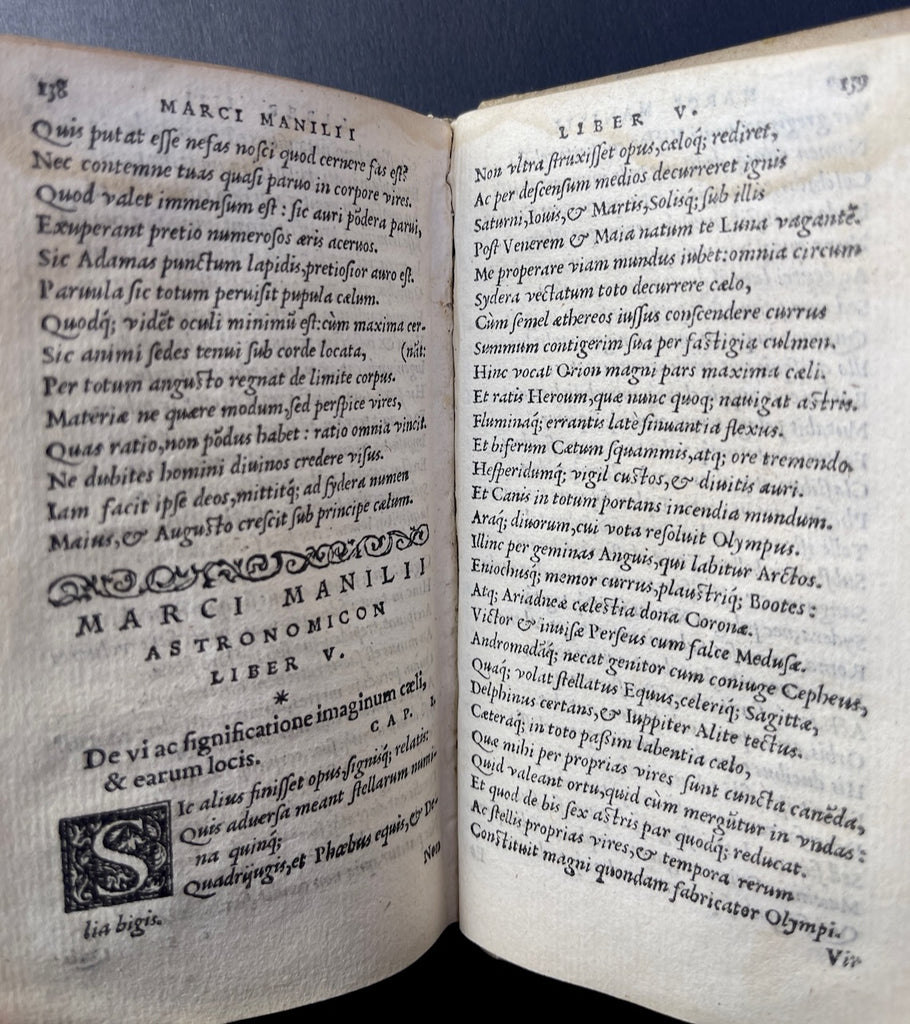 138
MARCI MANILII
Quis putat esse nefas nosci quod cernere fas est?
Nec contemne tuas quasi paruo in corpore vires.
Quod valet immensum est : sic auri põdera parui,
Exuperant pretio numerosos æris aceruos.
Sic Adamas punctum lapidis, pretiosior auro est.
Paruula sic totum peruisit pupula cælum.
Quodq; vidēt oculi minimũ est: cùm maxima cer-
Sic animi sedes tenui sub corde locata, (nāt:
Per totum angusto regnat de limite corpus.
Materiæ ne quære modum, sed perspice vires,
Quas ratio, non põdus habet : ratio omnia vincit.
Ne dubites homini diuinos credere visus.
Iam facit ipse deos, mittitq; ad sydera numen
Maius, & Augusto crescit sub principe cælum.
MARCI MANILII
ASTRONOMICON
LIBER V.
*
De vi ac significatione imaginum cæli,
& earum locis. CAP. I.
SIc alius finisset opus, signisq; relatis:
Quis aduersa meant stellarum numi-
na quinq;
Quadrijugis, et Phœbus equis, & De-
lia bigis.
Non
159
LIBER V.
Non vltra struxisset opus, cæloq; rediret,
Ac per descensum medios decurreret ignis
Saturni, Iouis, & Martis, Solisq; sub illis
Post Venerem & Maia natum te Luna vagantē.
Me properare viam mundus iubet: omnia circum
Sydera vectatum toto decurrere cælo,
Cùm semel æthereos iussus conscendere currus
Summum contigerim sua per fastigia culmen.
Hinc vocat Orion magni pars maxima cæli.
Et ratis Heroum, quæ nunc quoq; nauigat astris.
Fluminaq; errantis latè sinuantia flexus.
Et biferum Cætum squammis, atq; ore tremendo.
Hesperidumq; vigil custos, & diuitis auri.
Et Canis in totum portans incendia mundum.
Araq; diuorum, cui vota resoluit Olympus.
Illinc per geminas Anguis, qui labitur Arctos.
Eniochusq; memor currus, plaustriq; Bootes :
Atq; Ariadneæ cælestia dona Coronæ.
Victor & inuisæ Perseus cum falce Medusæ.
Andromedāq; necat genitor cum coniuge Cepheus,
Quaq; volat stellatus Equus, celeriq; Sagittæ,
Delphinus certans, & Iuppiter Alite tectus.
Cæteraq; in toto paßim labentia cælo,
Quæ mihi per proprias vires sunt cuncta canēda,
Quid valeant ortu, quid cùm mergũtur in vndas :
Et quod de bis sex astris par quodq; reducat.
Ac stellis proprias vires, & tempora rerum
Constituit magni quondam fabricator Olympi.
Vir